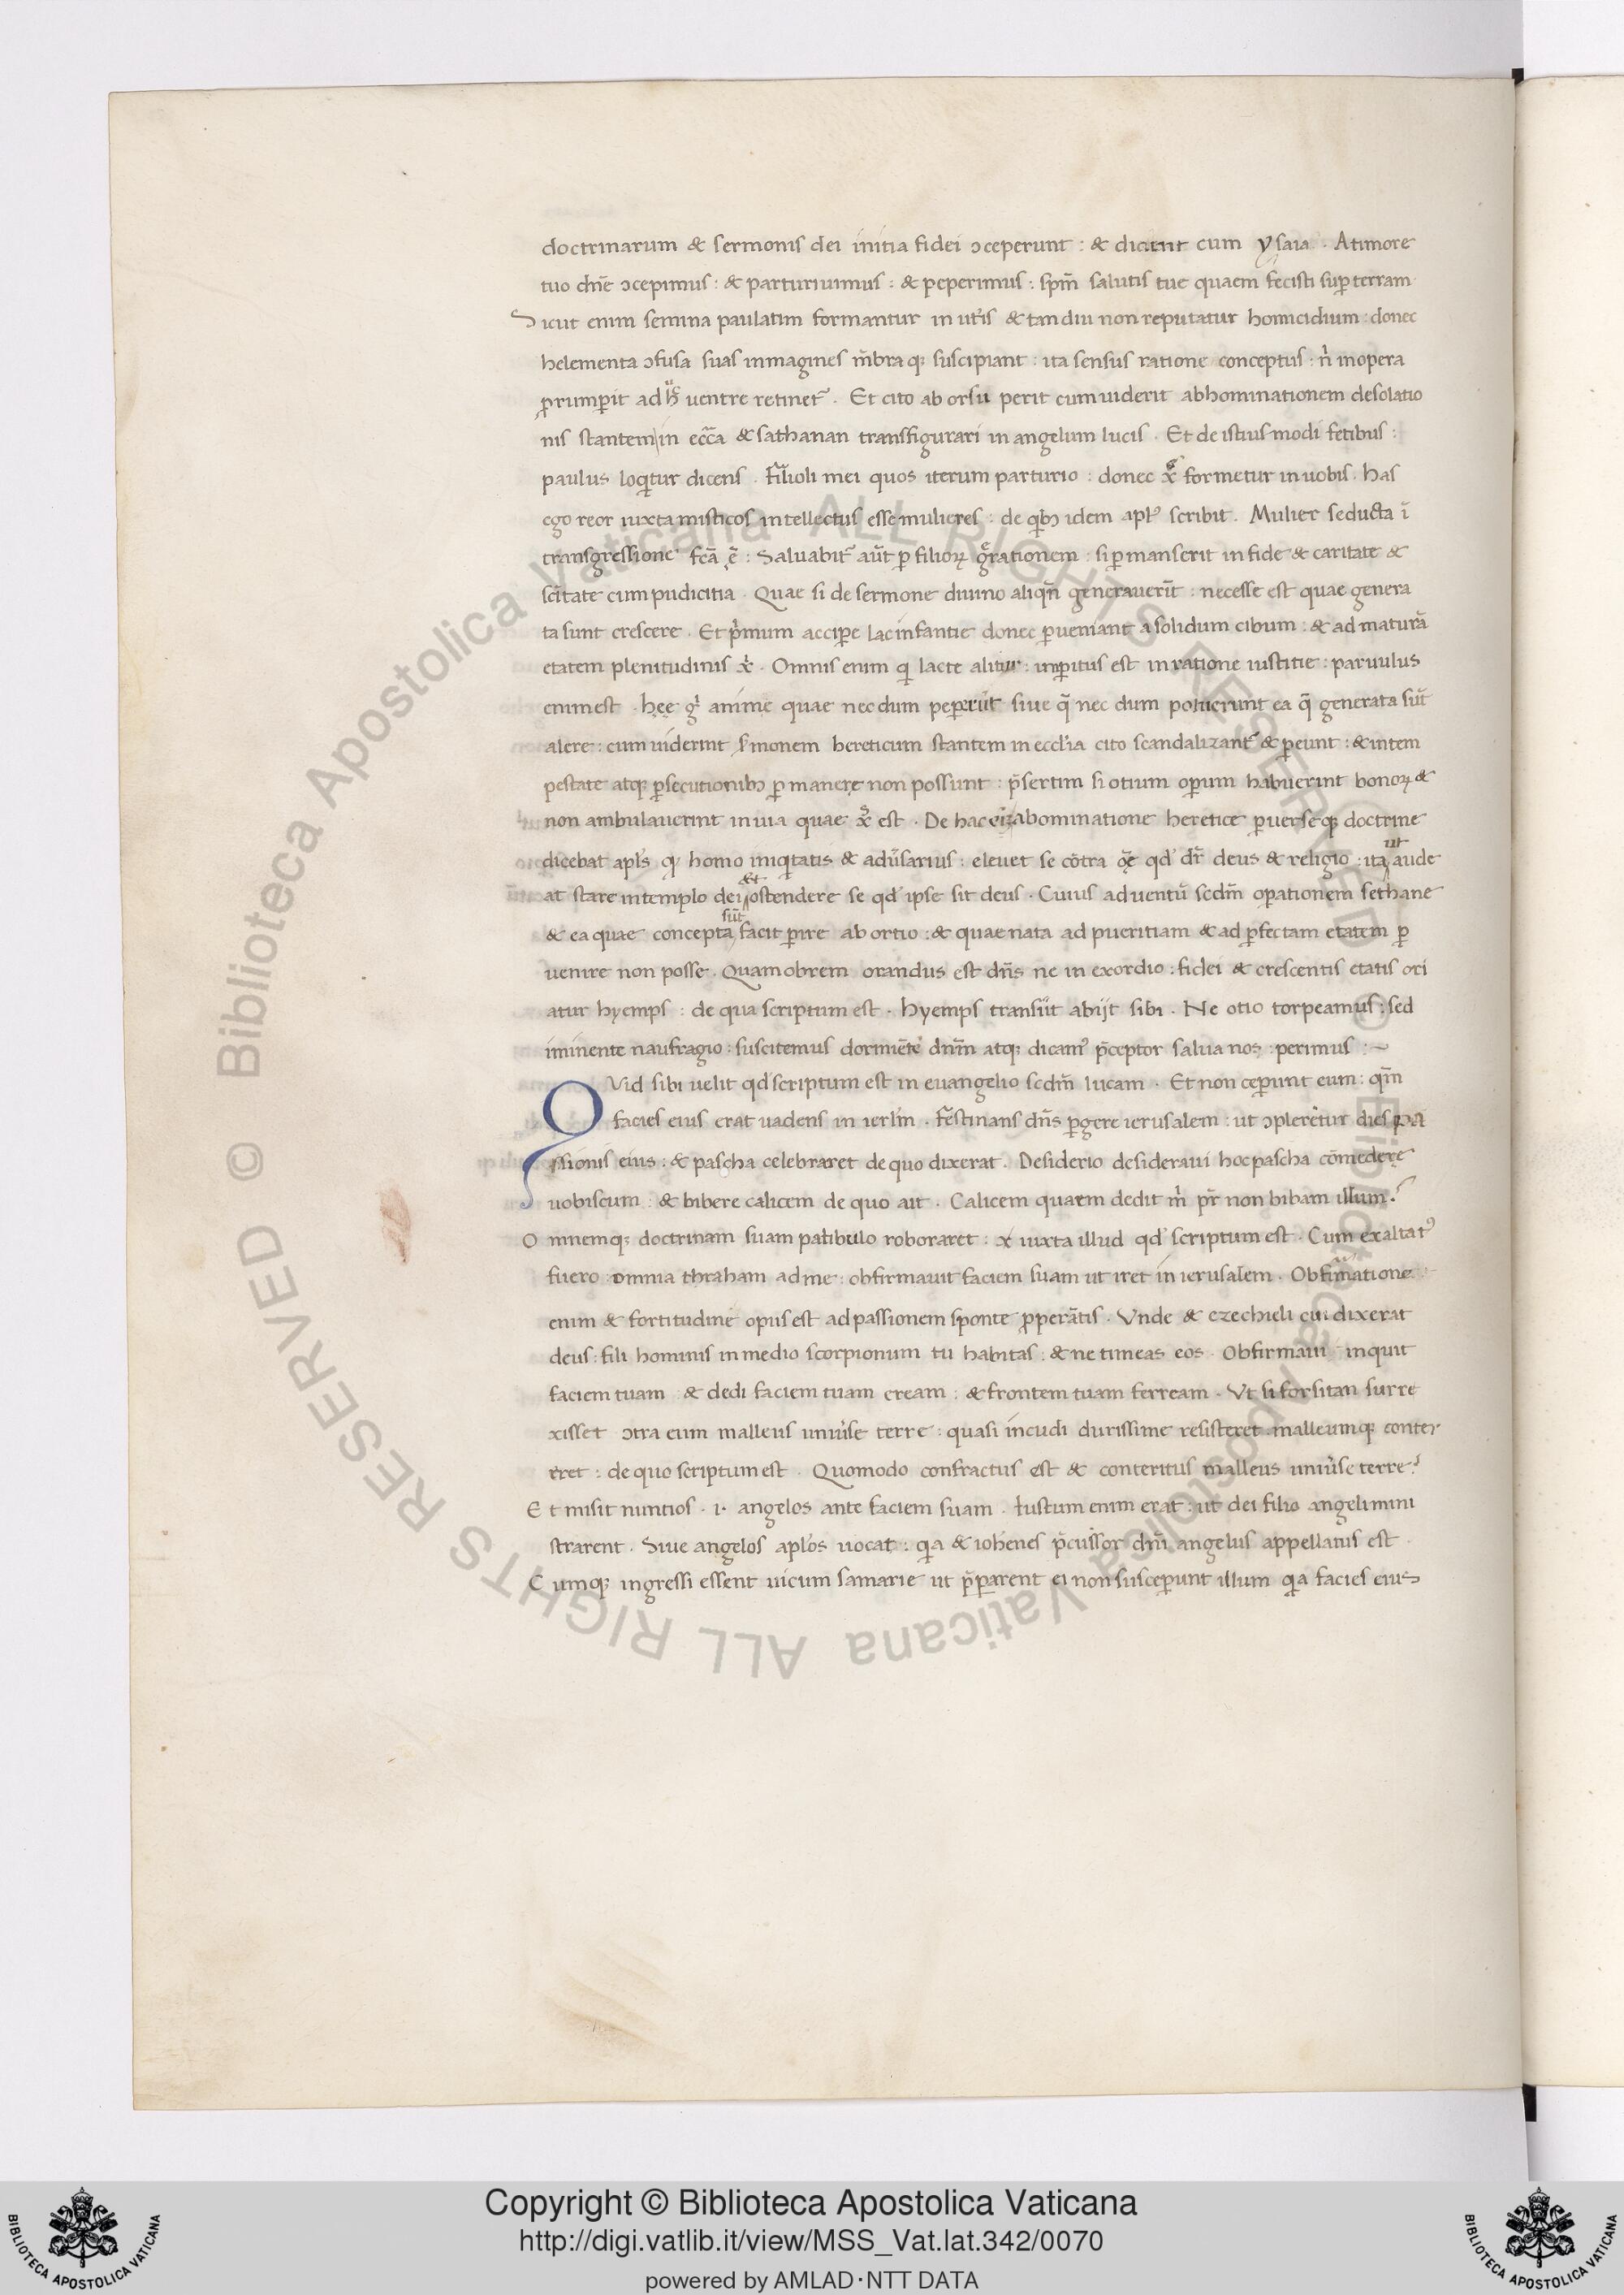 doctrinarum & sermonis dei initia fidei ɔceperunt : & dicent cum ysaia . A timore
tuo dn̄e ɔcepimus : & parturiuimus : & peperimus : sp̄m salutis tue quaem fecisti sup̱ terram
Sicut enim semina paulatim formantur in ut̓is & tandiu non reputatur homicidium : donec
helementa ɔfusa suas inmagines m̄braqꝫ suscipiant : ita sensus ratione conceptus : n̓ in opera
prumꝑit adh̓ uentre retinet᷑ . Et cito ab orsu perit cum uiderit abhominationem desolatio
nis stantem in ecc̄a & sathanan transfigurari in angelum lucis . Et de istius modi fetibus :
paulus loqͥtur dicens . Filioli mei quos iterum parturio : donec xp̄ formetur in uobis . has
ego reor iuxta misticos intellectus esse mulieres : de qͥbꝫ idem apl᷒ scribit . Mulier seducta ī
transgressione fc̄a ē : Saluabit᷑ aūt ꝑ filioꝝ gͤrationem : si ꝑmanserit in fide & caritate &
sc̄itate cum pudicitia . Quae si de sermone diuino aliqn̄ generauerīt : necesse est quae genera
ta sunt crescere . Et pͥmum acciꝑe lac infantie donec ꝑueniant a solidum cibum : & ad maturā
etatem plenitudinis xͥ . Omnis enim qͥ lacte alitur : inꝑitus est in ratione iustitie : paruulus
enim est . hęę gͥ anime quae nec dum peperūt siue q̄ nec dum potuerunt ea q̄ generata sūt
alere : cum uiderint s̓monem hereticum stantem in ecclīa cito scandalizant᷑ & ꝑeunt : & in tem
pestate atqꝫ ꝑsecutionibꝫ ꝑmanere non possunt : p̄sertim si otium oꝑum habuerint bonoꝝ &
non ambulauerint in uia quae xp̄s est . De hac abominatione heretice ꝑuerseqꝫ doctrine
dicebat apl̓s qꝫ homo iniqͥtatis & adu̓sarius : eleuet se cōtra oē qd̓ dr̄ deus & religio : ita ut aude
at stare in templo dei & ostendere se qd̓ ipse sit deus . Cuius aduentū scdm̄ oꝑationem sethane
& ea quae concepta sūt facit ꝑire abortio : & quae nata ad pueritiam & ad ꝑfectam etatem ꝑ
uenire non posse . Quamobrem orandus est dn̄s ne in exordio : fidei & crescentis etatis ori
atur hyemps : de qua scriptum est . hyemps transiit abijt sibi . Ne otio torpeamus : sed
iminente naufragio : suscitemus dormiēte dn̄m atqꝫ dicam᷒ p̄ceptor salua nos : perimus :~
Quid sibi uelit qd̓ scriptum est in euangelio scdm̄ lucam . Et non ceꝑunt eum : qm̄
facies eius erat uadens in ierl̄m . Festinans dn̄s ꝑgere ierusalem : ut ɔplerētur dies pa
ssionis eius : & pascha celebraret de quo dixerat . Desiderio desideraui hoc pascha cōmedere
uobiscum : & bibere calicem de quo ait . Calicem quaem dedit m̓ pr̄ non bibam illum ?
Omnemqꝫ doctrinam suam patibulo roboraret : x iuxta illud qd̓ scriptum est . Cum exaltat᷒
fuero omnia thraham ad me : obfirmauit faciem suam ut iret in ierusalem . Obfirmatione
enim & fortitudine opus est ad passionem sponte ꝓperātis . Vnde & ezechieli cui dixerat
deus : fili hominis in medio scorpionum tu habitas : & ne timeas eos . Obfirmaui inquit
faciem tuam & dedi faciem tuam eream : & frontem tuam ferream . Vt si forsitan surre
xisset ɔtra eum malleus uniu̓se terre : quasi incudi durissime resisteret malleumqꝫ conter
eret : de quo scriptum est . Quomodo confractus est & conteritus malleus uniu̓se terre ?
Et misit nuntios . i. angelos ante faciem suam . Iustum enim erat : ut dei filio angeli mini
strarent . Siue angelos apl̓os uocat : qͥa & iohēnes p̄cussor dn̄i angelus appellatus est
Cumqꝫ ingressi essent uicum samarie ut p̄ꝑarent ei non susceꝑunt illum qͥa facies eius
© Biblioteca Apostolica Vaticana ALL RIGHTS RESERVED © Biblioteca Apostolica Vaticana ALL RIGHTS RESERVED
Copyright © Biblioteca Apostolica Vaticana
http://digi.vatlib.it/view/MSS_Vat.lat.342/0070
powered by AMLAD·NTT DATA
BIBLIOTECA APOSTOLICA VATICANA
BIBLIOTECA APOSTOLICA VATICANA